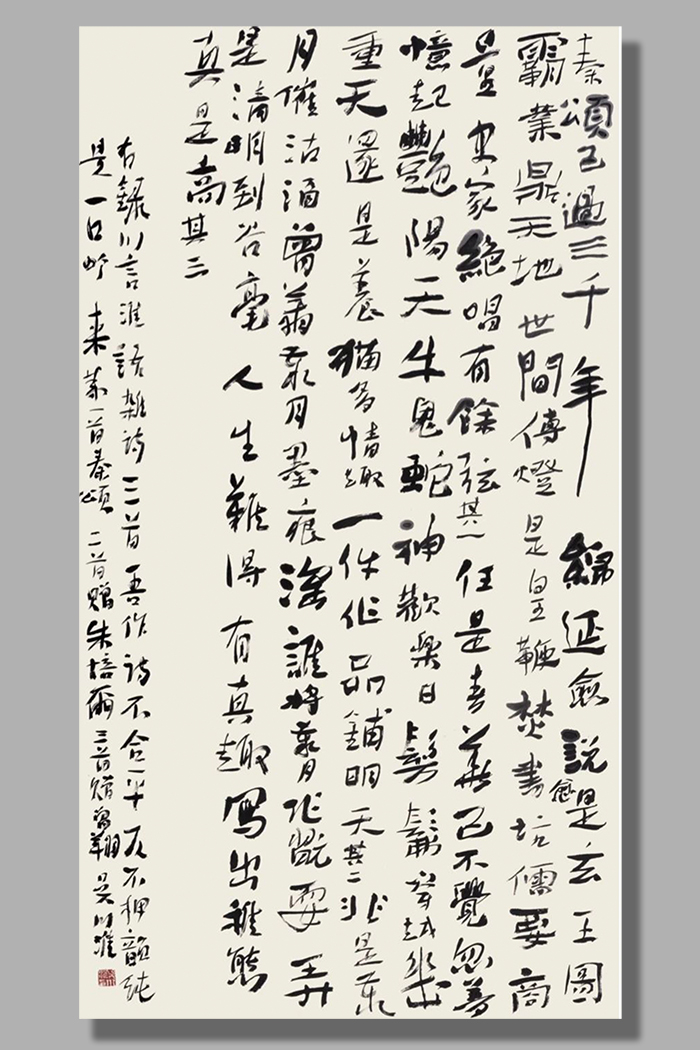 秦頌已過三千年 綿延愈說愈是玄王圖
霸業鼎天地世間傳燈是皇鞭焚書坑儒要商
量是史家絕唱有餘弦其一任是春華已不覺忽善
憶起艷陽天牛鬼蛇神歡樂日髯鬍穿越
重天還是養猫多情趣一件作品鋪明天其二非是
月催沽酒曾翁月墨痕深誰將月作戲耍弄
是淪明到谷毫人生難得有真趣寫出稚態
真是高其三
右錄川言淮語雜詩三首吾作詩不合平仄不押韻純
是一口吵來第一首秦頌二首贈朱培爾三首贈曾翔是川淮